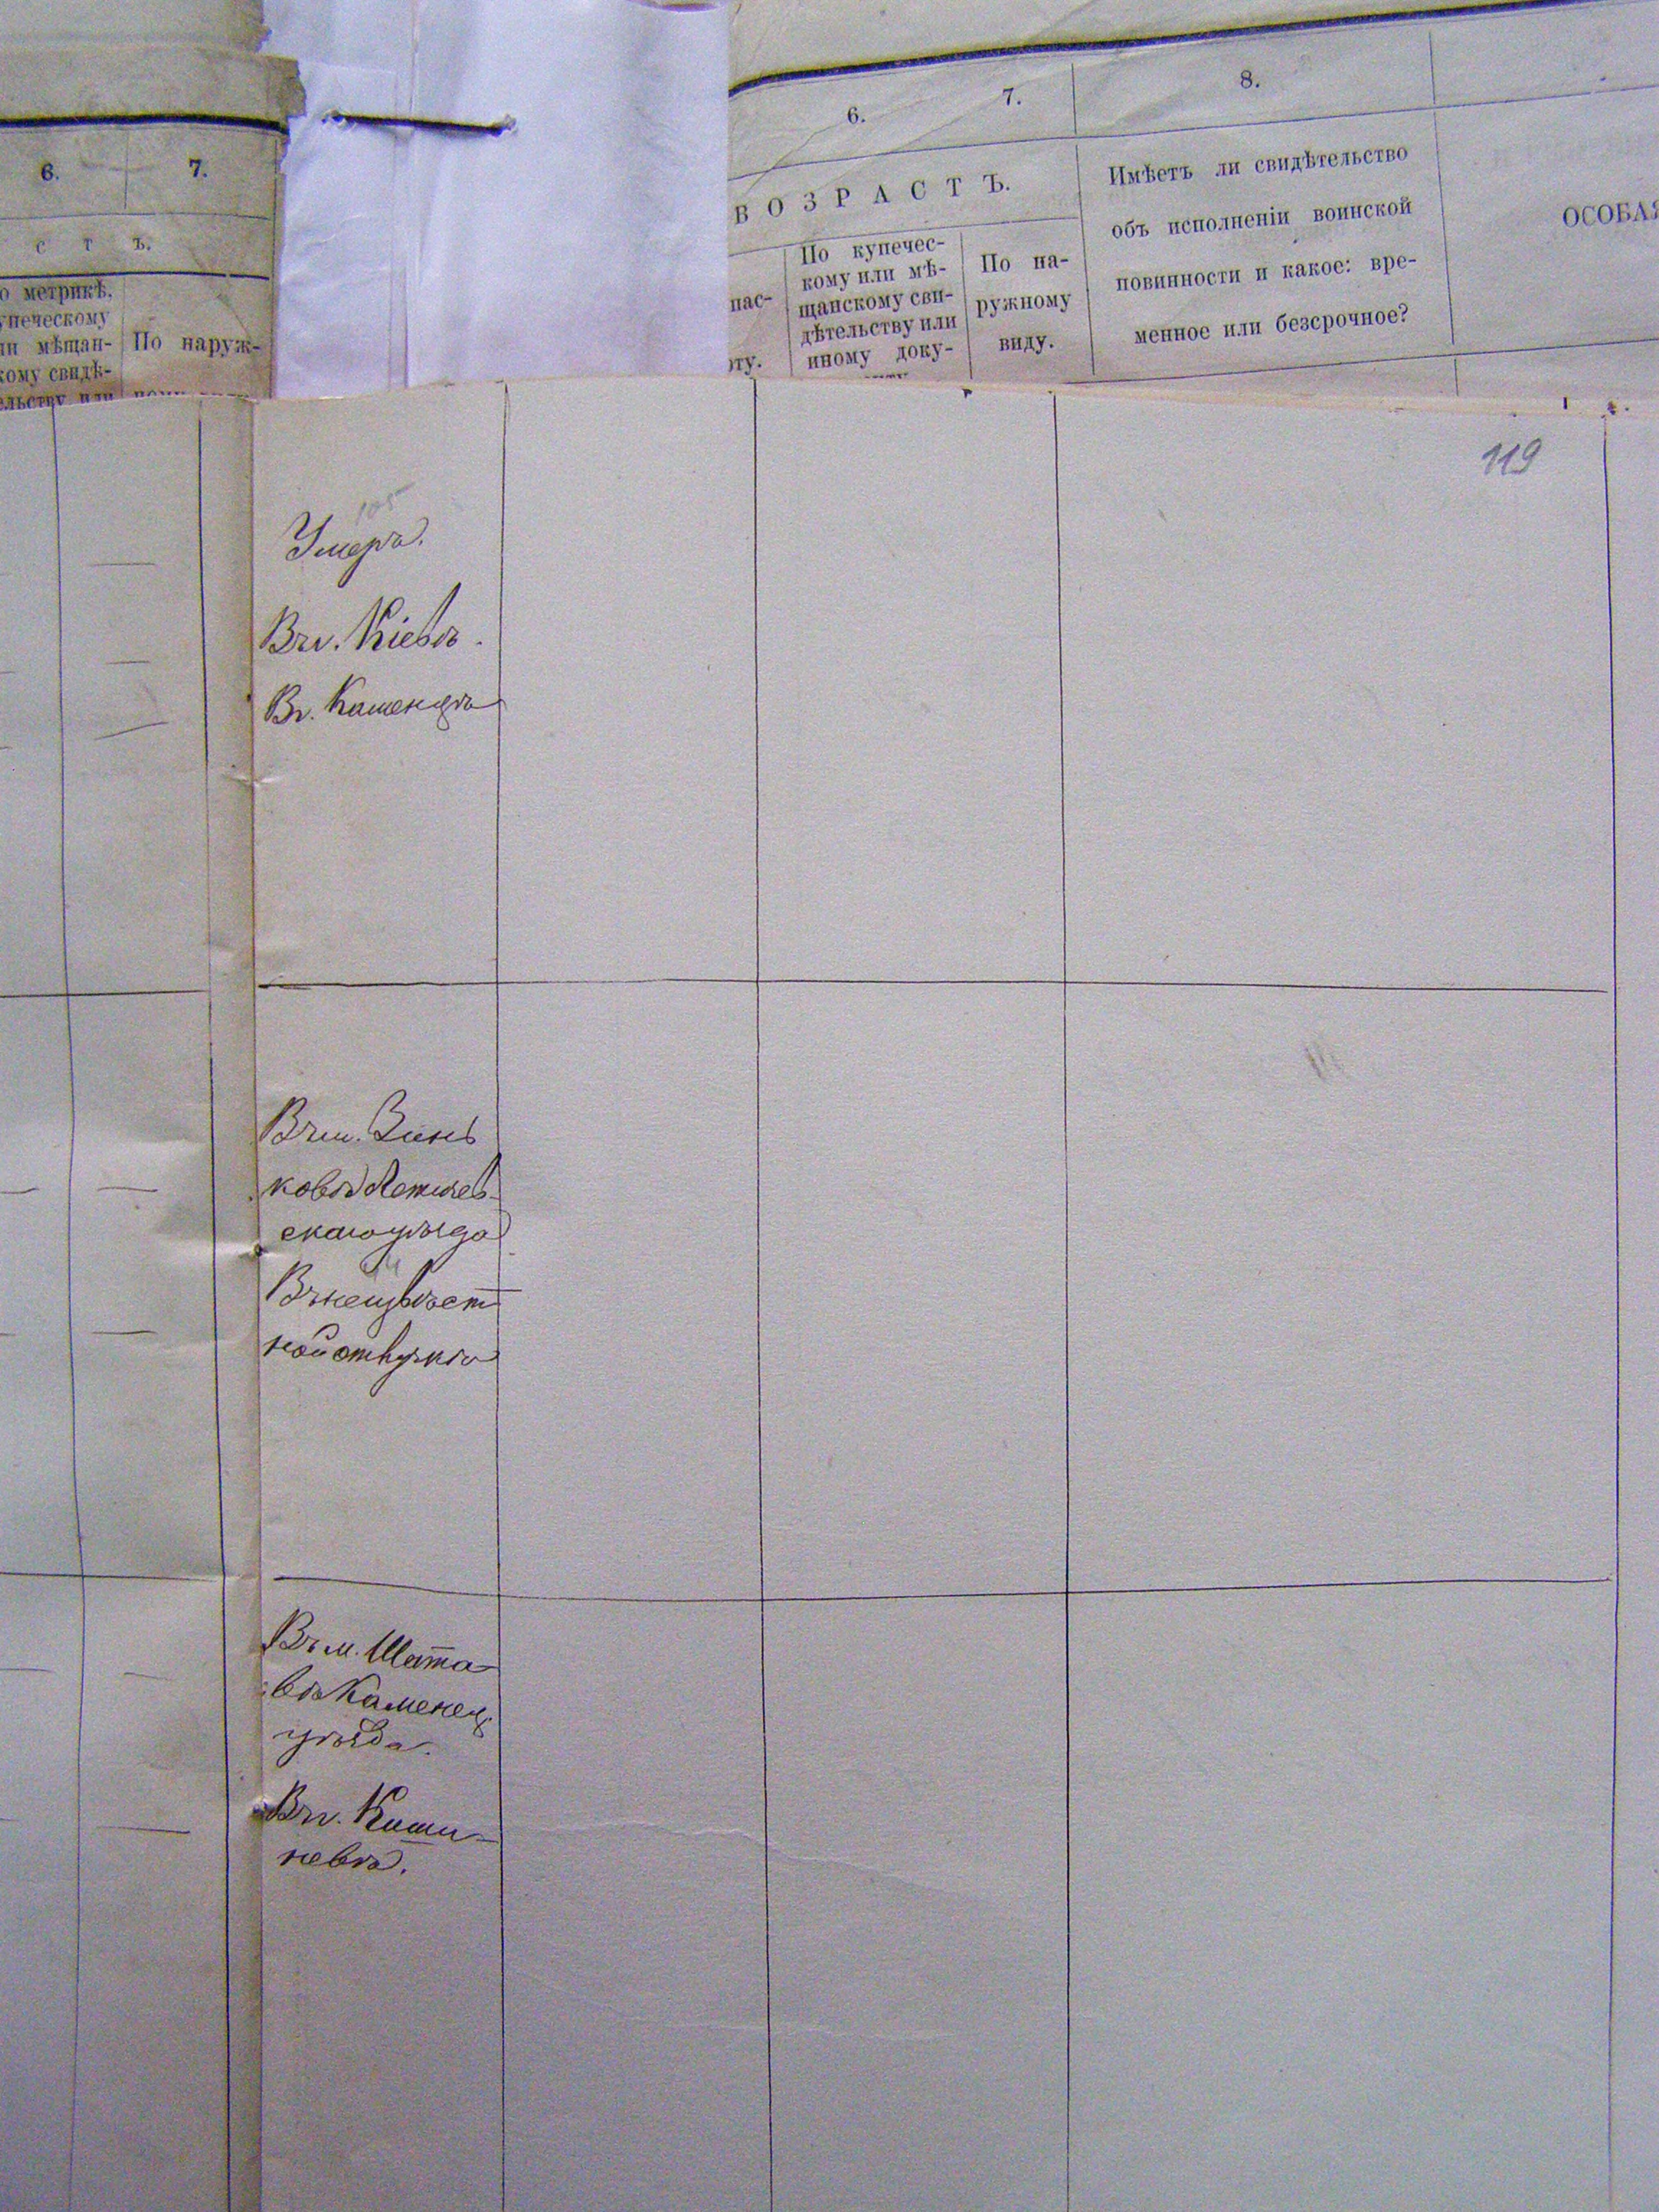 6. 7.
с т ъ.
о метрикѣ,
упеческому
ли мѣщан-
кому свидѣ-
ельству или
По наруж-
6. 7. 8.
ВОЗРАСТЪ.
пас-
рту.
По купечес-
кому или мѣ-
щанскому сви-
дѣтельству или
иному доку-
По на-
ружному
виду.
Имѣетъ ли свидѣтельство
объ исполненіи воинской
повинности и какое: вре-
менное или безсрочное?
ОСОБАЯ
119
105
Умеръ.
Въ г. Кіевѣ.
Въ г. Каменцѣ
Въ м. Зинь
ковѣ Летичев-
скаго уѣзда
Въ неизвѣст
ной отлучкѣ
Въ м. Шата-
вѣ Каменец.
уѣзда.
Въ г. Киши-
невѣ.